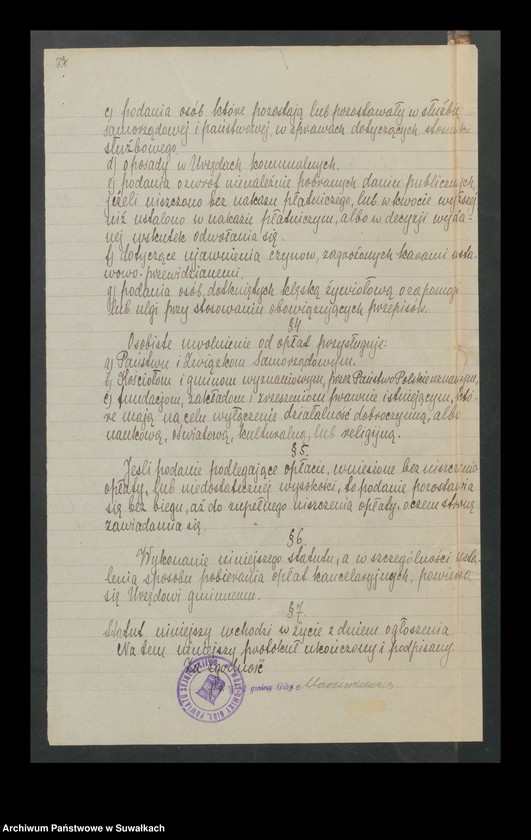 c) podania osób które pozostają lub pozostawały w służbie
samorządowej i państwowej, w sprawach dotyczących stosunku
służbowego.
d) o posady w Urzędach komunalnych.
e) podania o zwrot nienależnie pobranych danin publicznych,
jeżeli uiszczono bez nakazu płatniczego, lub w kwocie wyższej
niż ustalono w nakazie płatniczym, albo w decyzji wyda-
nej wskutek odwołania się.
f) dotyczące ujawnienia czynów, zagrożonych karami usta-
wowo-przewidzianemi.
g) podania osób, dotkniętych klęską żywiołową o zapomogę
lub ulgi przy stosowaniu obowiązujących przepisów.
§ 4
Osobiste uwolnienie od opłat przysługuje:
a) Państwu i Związkom Samorządowym.
b) Kościołom i gminom wyznaniowym, przez Państwo Polskie uznanym,
c) fundacjom, zakładom i zrzeszeniom prawnie istniejącym, któ-
re mają na celu wyłącznie działalność dobroczynną, albo
naukową, oświatową, kulturalną, lub religijną.
§ 5.
Jeśli podanie podlegające opłacie, wniesione bez uiszczenia
opłaty, lub niedostatecznej wysokości, to podanie pozostawia
się bez biegu, aż do zupełnego uiszczenia opłaty, o czem stronę
zawiadamia się.
§ 6.
Wykonanie niniejszego statutu, a w szczególności usta-
lenia sposobu pobierania opłat kancelaryjnych, powierza
się Urzędowi gminnemu.
§ 7.
Statut niniejszy wchodzi w życie z dniem ogłoszenia.
Na tem niniejszy protokuł ukończony i podpisany.
Za zgodność
gminy Giby Marcinkiewicz
Archiwum Państwowe w Suwałkach